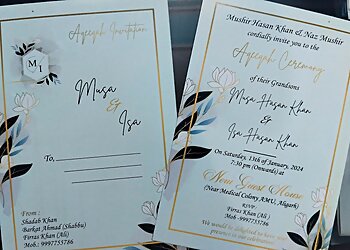 Aqeeqah Invitation
M
I
Musa
&
Isa
To,
From :
Shadab Khan
Barkat Ahmad (Shabbu)
Firras Khan (Ali)
Mob: 9997755786
Mushir Hasan Khan & Naz Mushir
cordially invite you to the
Aqeeqah Ceremony
of their Grandsons
Musa Hasan Khan
&
Isa Hasan Khan
On Saturday, 13th of January, 2024
7:30 pm (Onwards) at
New Guest House
(Near Medical Colony AMU, Aligarh)
RSVP.
Firras Khan (Ali)
Mob- 9997755786
We would be delighted to have your
presence in our celebration